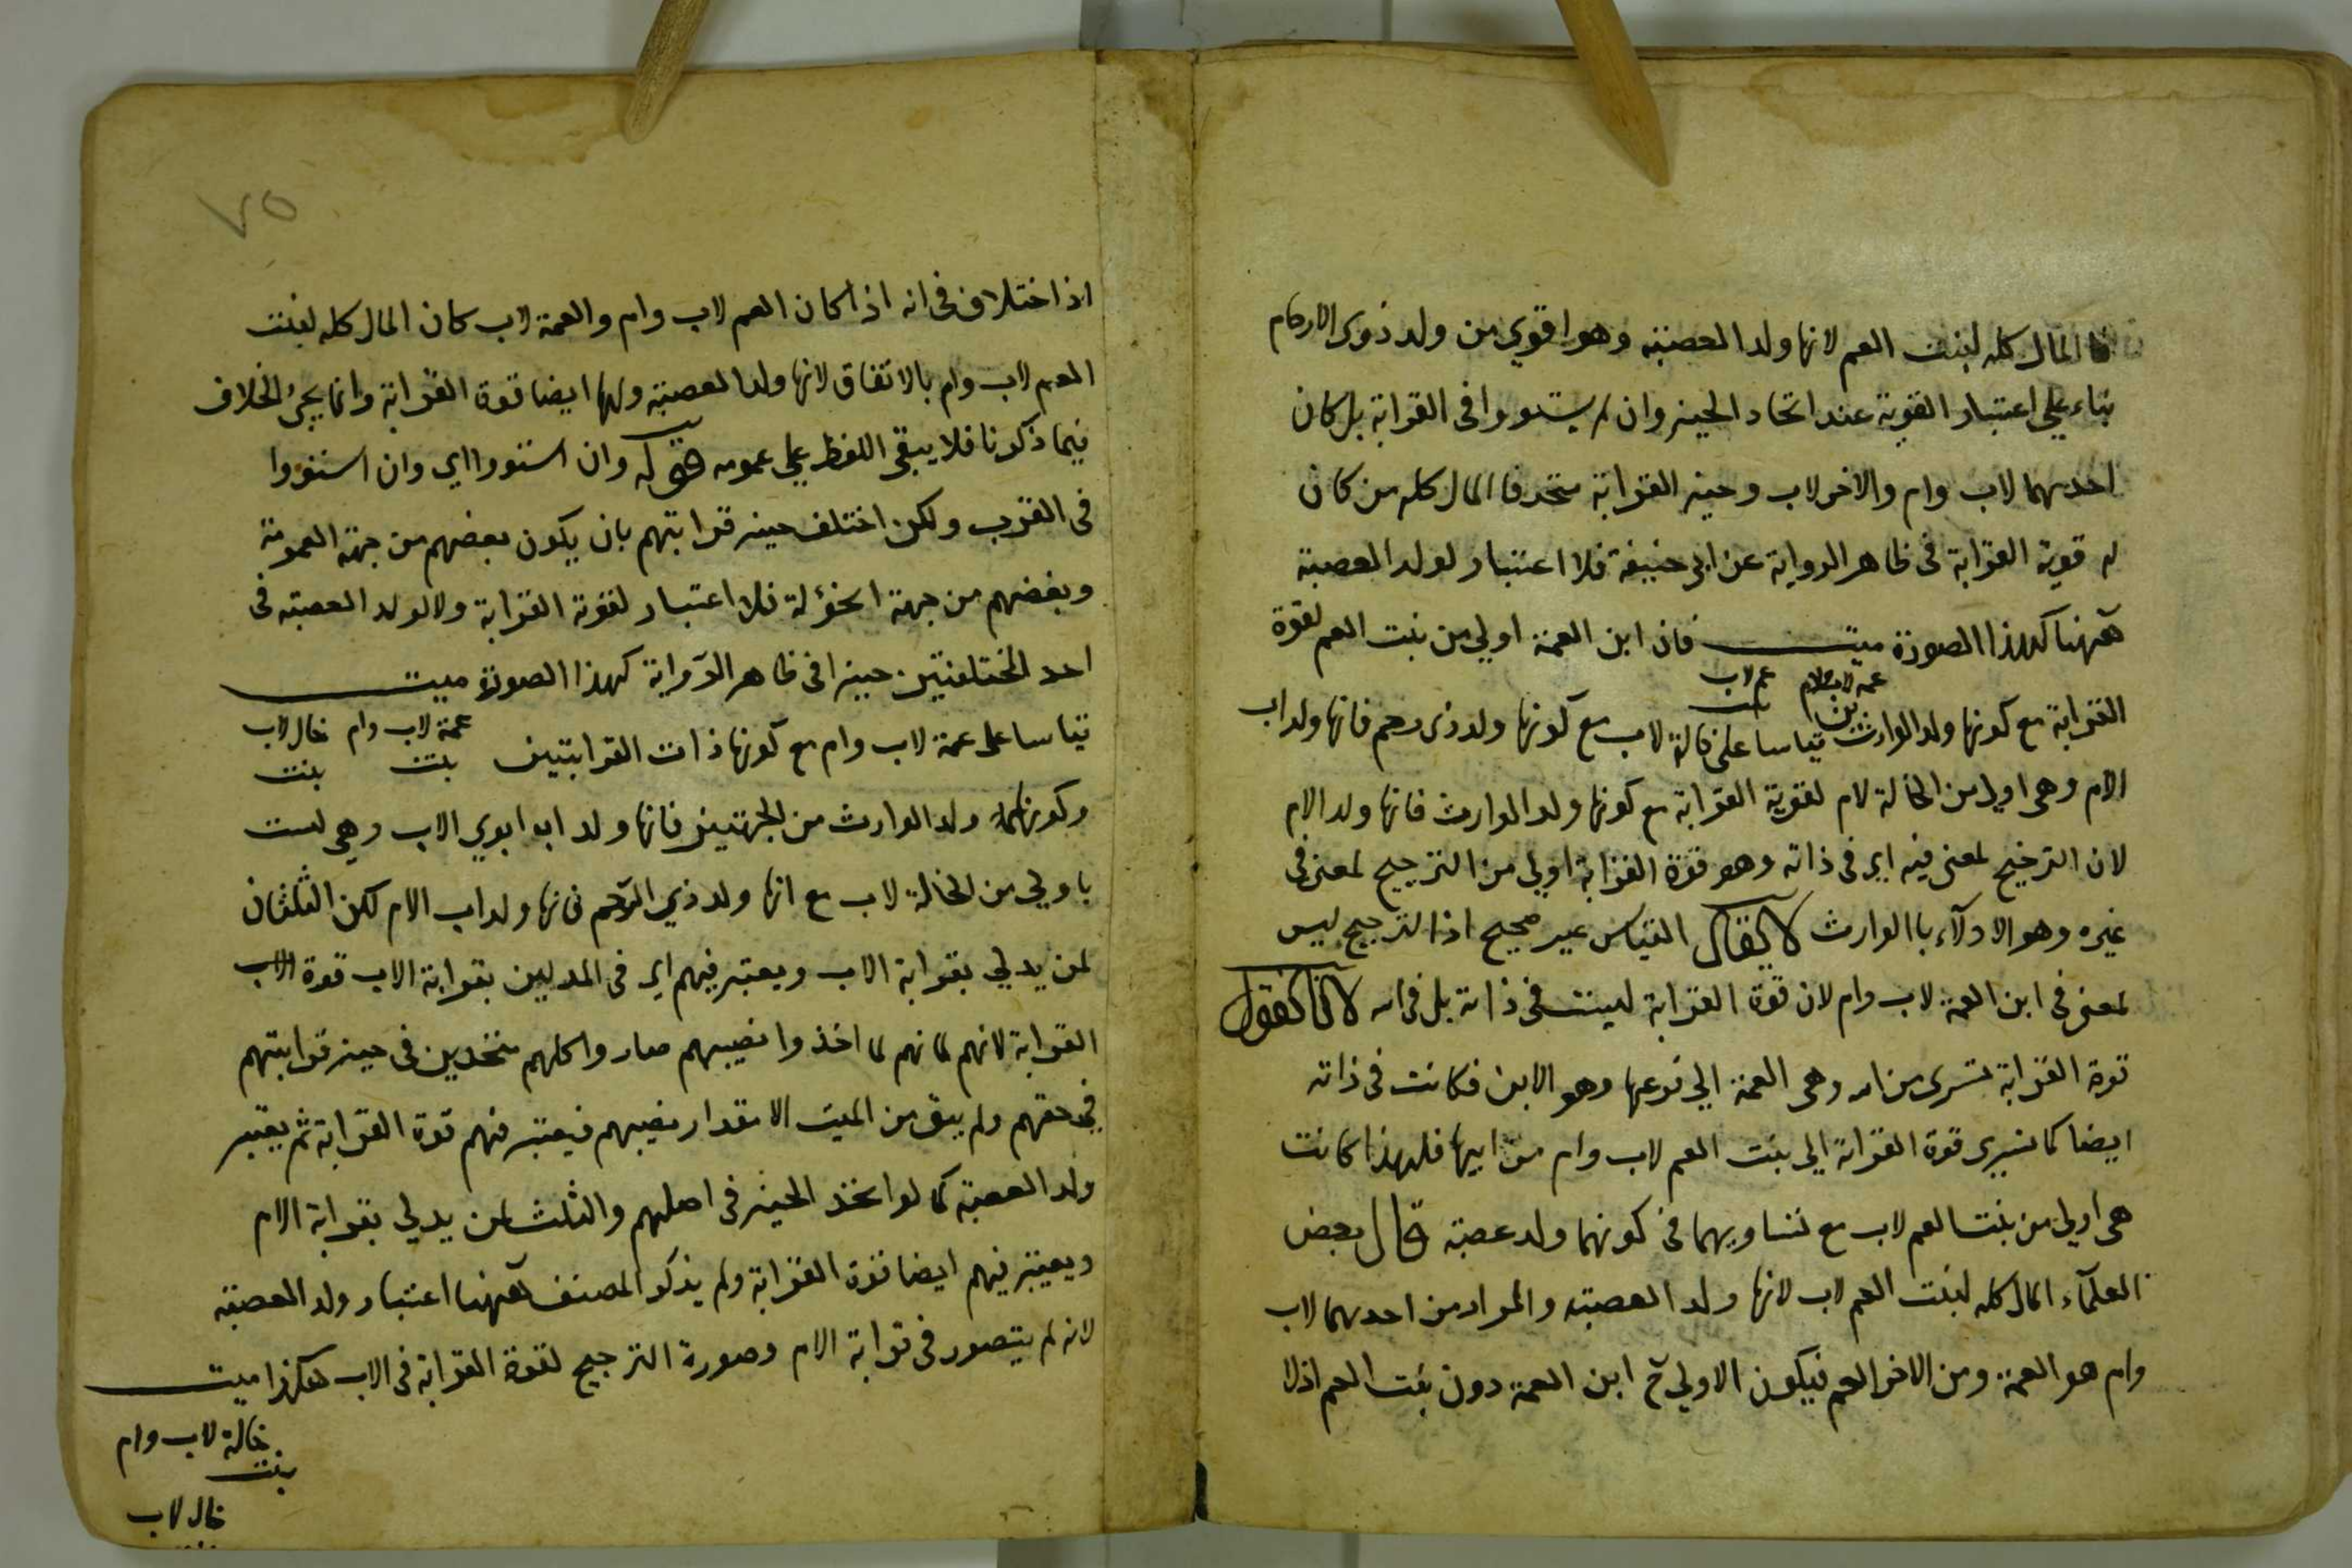 فالمال كله لبنت العم لانها ولد العصبة وهو اقوي من ولد ذوى الارحام
بناء علي اعتبار القوية عند اتحاد الحيز وان لم يستووا فى القرابة بل كان
احدهما لاب وام والاخر لاب وحيز القرابة متحد فا المال كله من كان
له قوية القرابة فى ظاهر الرواية عن ابى حنيفة فلا اعتبار لولد العصبة
ههنا كهذا الصورة ميت فان ابن العمة اولي من بنت العم لقوة
عمة لاب ولام عم لاب
ابن بنت
القرابة مع كونها ولد الوارث قياسا على خالة لاب مع كونها ولد ذى رحم فانها ولد اب
الام وهى اولى من الخالة لام لقوية القرابة مع كونها ولد الوارث فانها ولد الام
لان الترجيح لمعنى فيه اى فى ذاته وهو قوة القرابة اولى من الترجيح لمعنى فى
غيره وهو الادلآء باالوارث لا يقال القياس غير صحيح اذ الترجيح ليس
لمعنى فى ابن العمة لاب وام لان قوة القرابة ليست فى ذاته بل فى امه لانا نقول
قوة القرابة تسرى من امه وهى العمة الي فرعها وهو الابن فكانت فى ذاته
ايضا كما تسرى قوة القرابة الى بنت العم لاب وام من ابيها فلهذا كانت
هى اولى من بنت العم لاب مع تساويهما فى كونهما ولد عصبة قال بعض
العلمآء المال كله لبنت العم لاب لانها ولد العصبة والمراد من احدهما لاب
وام هو العمة ومن الاخر العم فيكون الاولي ح ابن العمة دون بنت العم اذلا
٧٥
اذ اختلاف فى انه اذا كان العم لاب وام والعمة لاب كان المال كله لبنت
العم لاب وام بالاتفاق لانها ولد العصبة ولها ايضا قوة القرابة وانما يجئ الخلاف
فيما ذكرنا فلا يبقى اللفظ علي عمومه وان استووا اي وان استووا
فى القرب ولكن اختلف حيز قرابتهم بان يكون بعضهم من جهة العمومة
وبعضهم من جهة الخؤلة فلا اعتبار لقوة القرابة ولا لولد العصبة فى
احد المختلفتين حيزا فى ظاهر الرواية كهذا الصورة ميت
عمة لاب وام خال لاب
بنت بنت
قياسا على عمة لاب وام مع كونها ذات القرابتين
وكونها ولد الوارث من الجهتين فانها ولد اب ابوي الاب وهى ليست
باولي من الخالة لاب مع انها ولد ذي الرحم فانها ولد اب الام لكن الثلثان
لمن يدلي بقرابة الاب ويعتبر فيهم اى فى المدليين بقرابة الاب قوة
القرابة لانهم لما اخذوا نصيبهم صاروا كلهم متحدين فى حيز قرابتهم
فى حقهم ولم يبق من الميت الا مقدار نصيبهم فيعتبر فيهم قوة القرابة ثم يعتبر
ولد العصبة كما لو اتحد الحيز فى اصلهم والثلث لمن يدلي بقرابة الام
ويعتبر فيهم ايضا قوة القرابة ولم يذكر المصنف ههنا اعتبار ولد العصبة
لانه لم يتصور فى قرابة الام وصورة الترجيح لقوة القرابة فى الاب هكذا ميت
خالة لاب وام
بنت
خال لاب